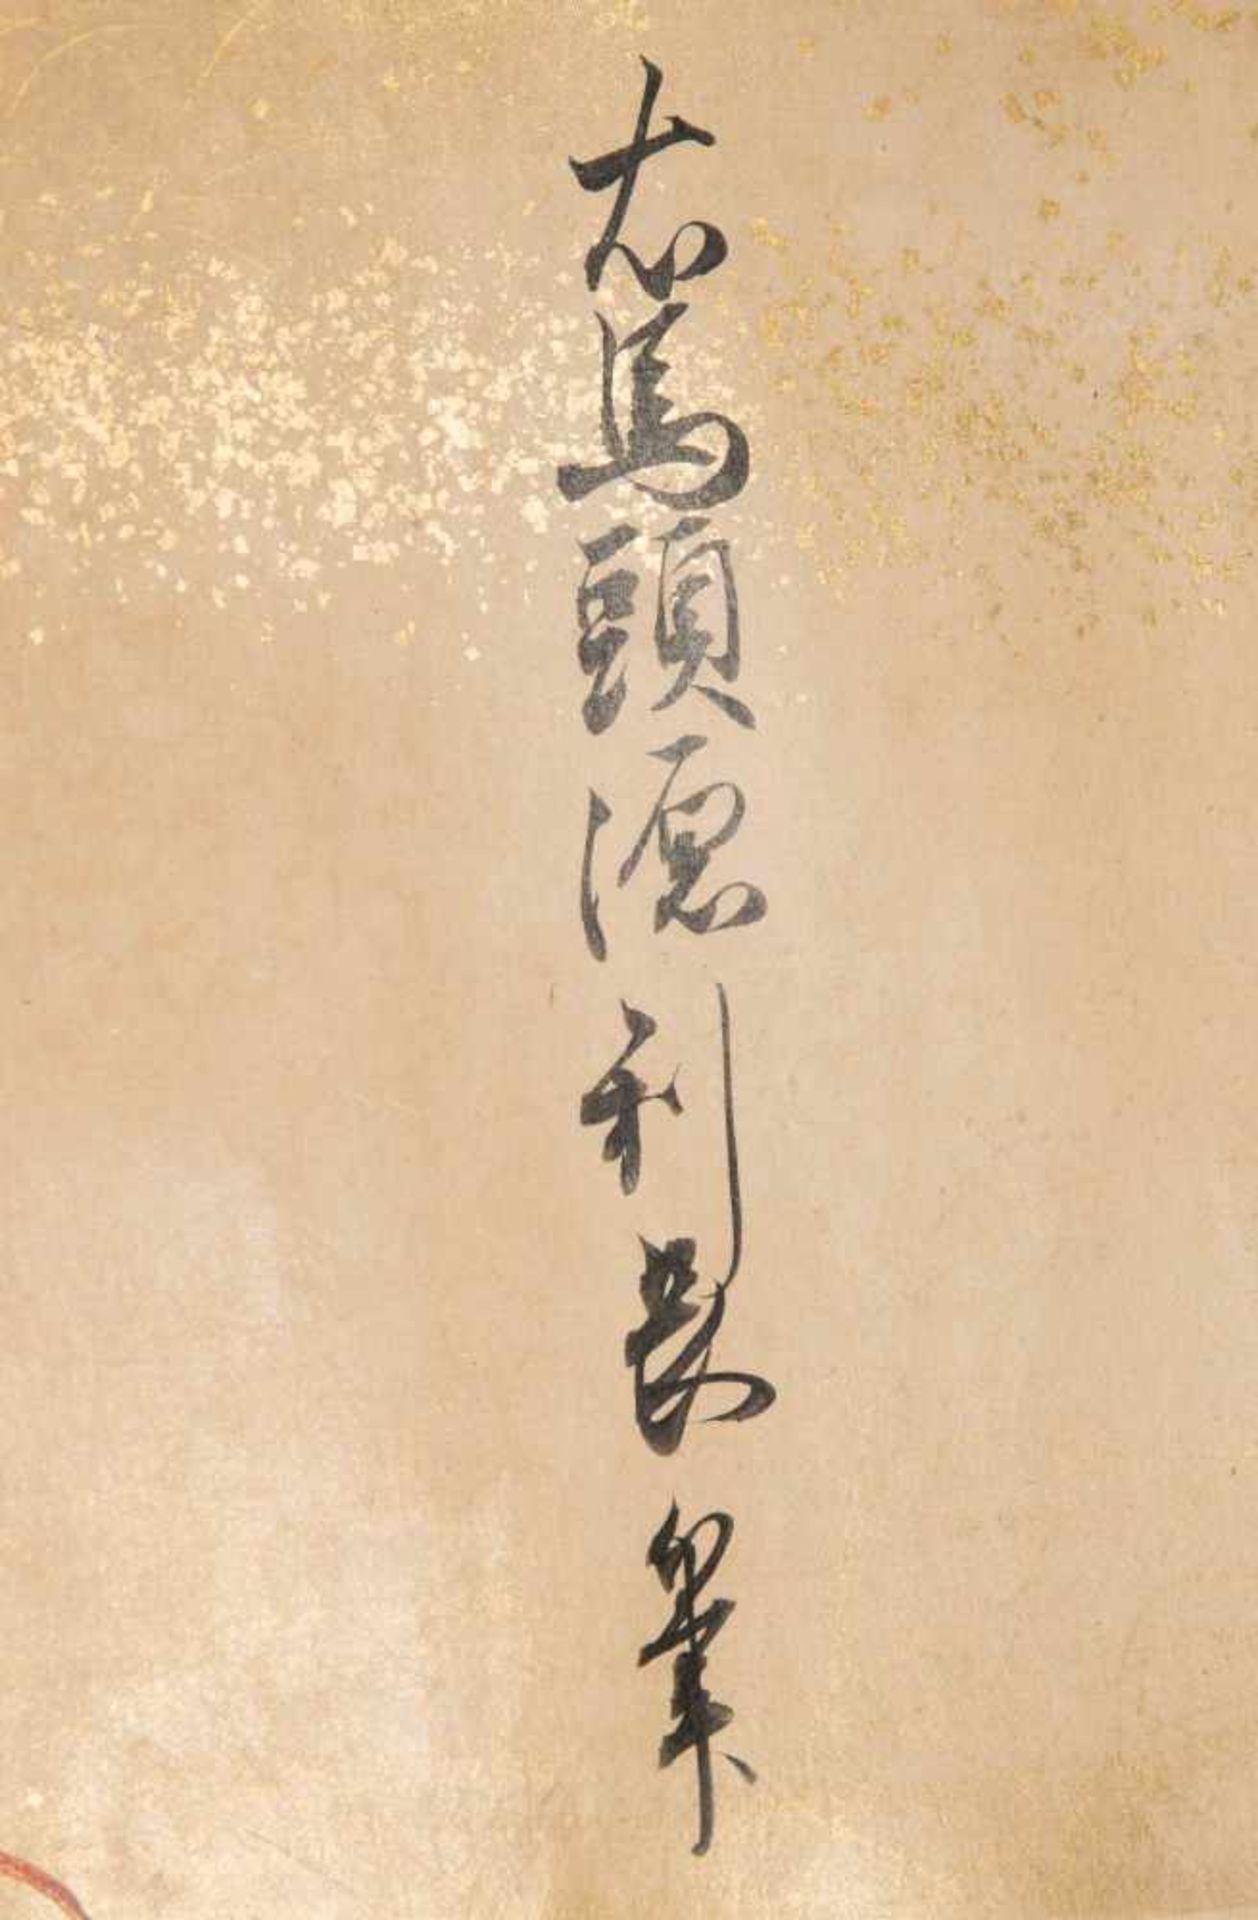 右馬頭源利長筆